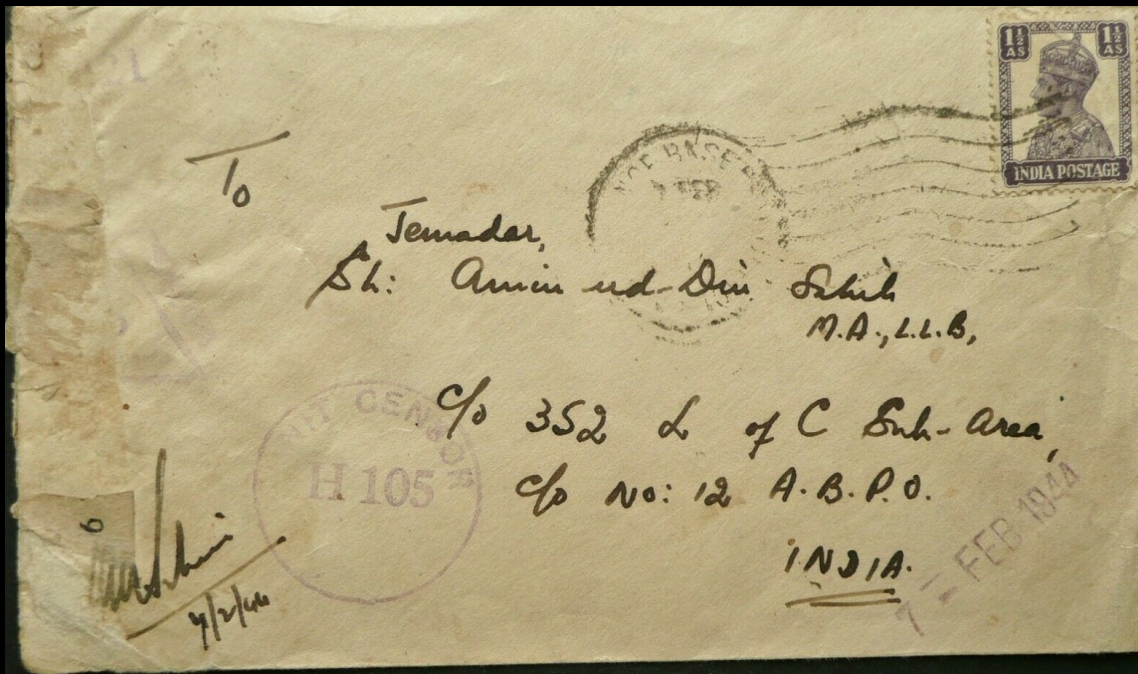 21
1½ AS 1½ AS
INDIA POSTAGE
BASE
FEB
To
Jemadar,
Sh: Amin ud-Din Sahib
M.A., L.L.B,
c/o 352 L of C Sub-Area,
c/o No: 12 A.B.P.O.
INDIA.
UNIT CENSOR
H 105
7 - FEB 1944
6
7/2/44